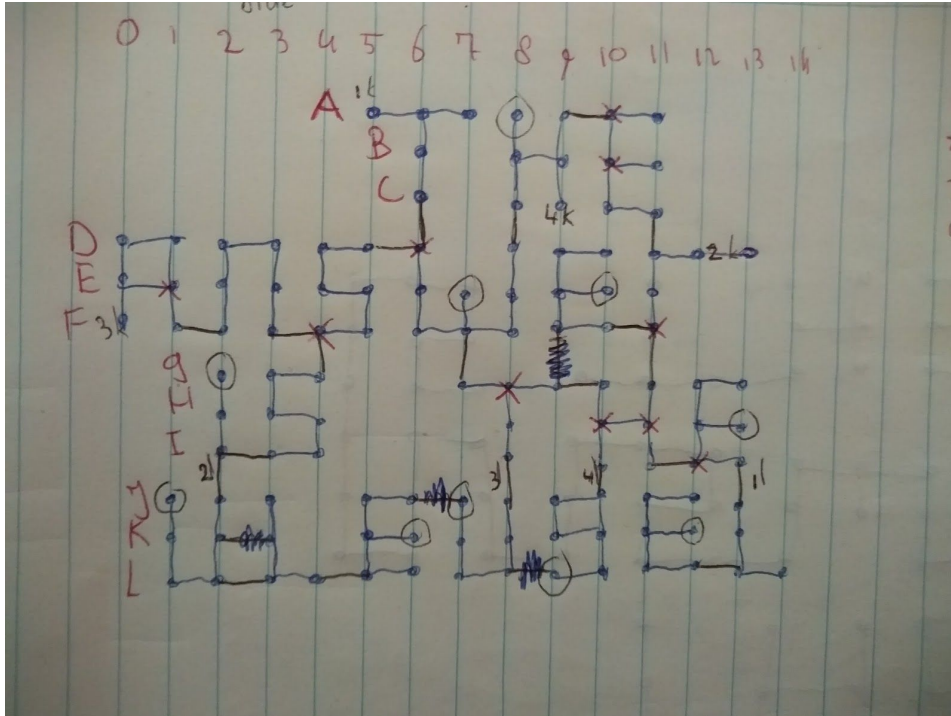 0 1 2 3 4 5 6 7 8 9 10 11 12 13 14
A 1k
B
C
4k
D 2k
E
F 3k
g
H
I
2k 3k 4k 1k
J
K
L